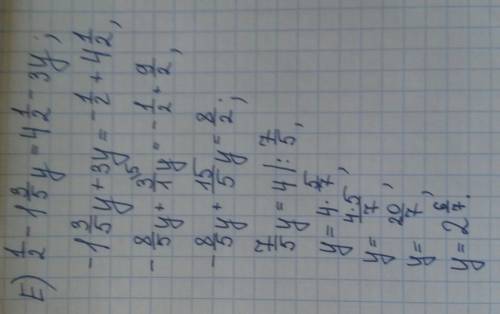 E) 1/2 - 1 3/5 y = 4 1/2 - 3y;
-1 3/5 y + 3y = -1/2 + 4 1/2;
-8/5 y + 3/1 \5 y = -1/2 + 9/2;
-8/5 y + 15/5 y = 8/2;
7/5 y = 4 | : 7/5;
y = 4 · 5/7;
y = 4·5/7;
y = 20/7;
y = 2 6/7.